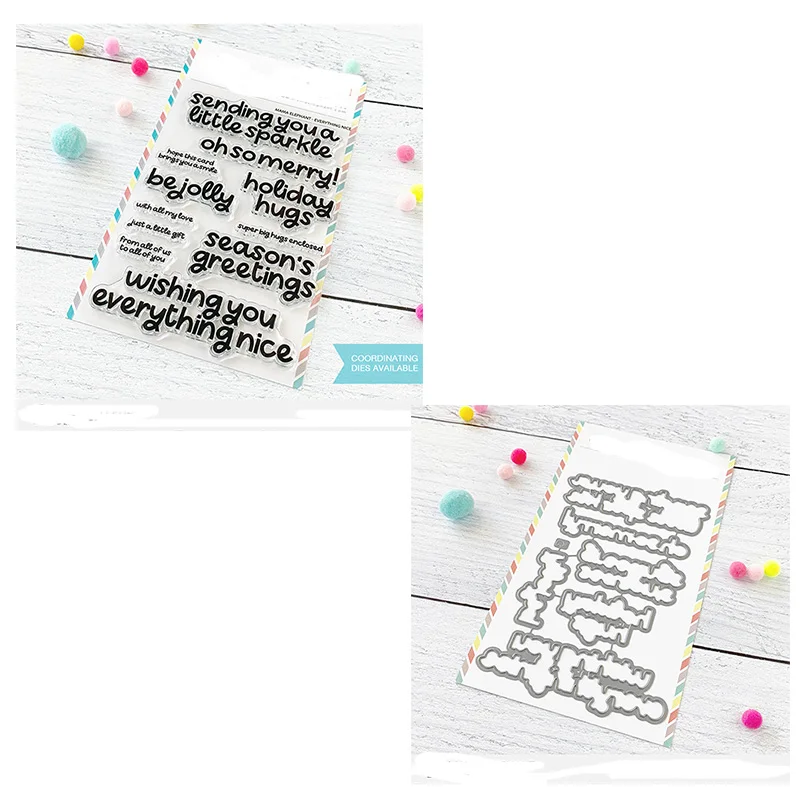 MAMA ELEPHANT - EVERYTHING NICE
sending you a
little sparkle
oh so merry!
hope this card
brings you a smile
be jolly
holiday
hugs
with all my love
just a little gift
super big hugs enclosed
from all of us
to all of you
season's
greetings
wishing you
everything nice
COORDINATING
DIES AVAILABLE